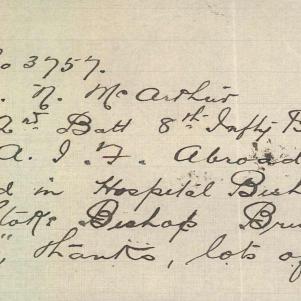 o 3757.
. N. McArthur
2nd Batt 8th Infty
A. I. F. Abroad
d in Hospital Bish
Stoke Bishop Bri
", thanks, lots of